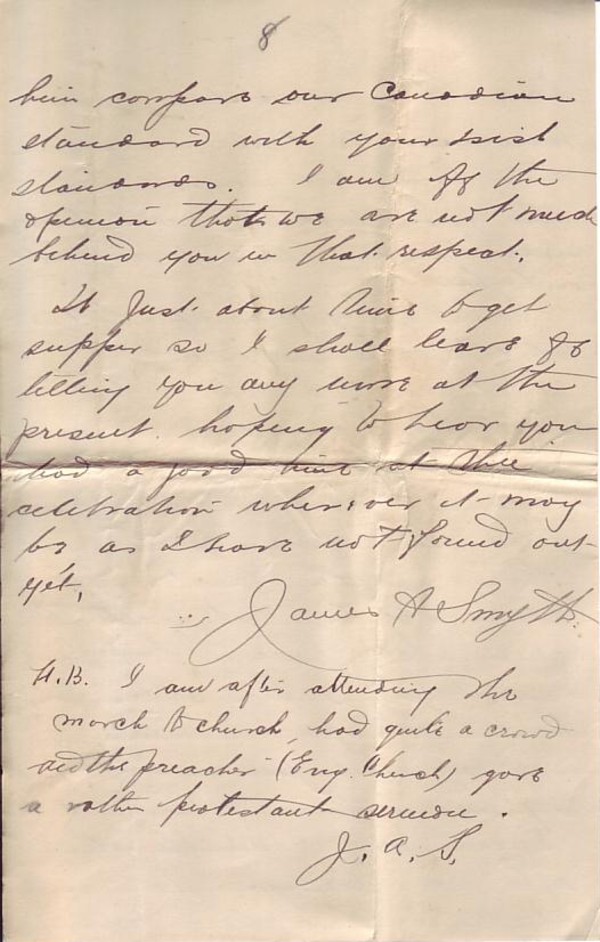 8
him compare our Canadian
standard with your Irish
standards. I am of the
opinion that we are not much
behind you in that respect.
It Just about time to get
supper so I shall leave of
telling you any more at the
present. hoping to hear you
had a good time at the
celebration wherever it may
be as I have not found out
yet,
James A Smyth.
N.B. I am after attending the
march to church, had quite a crowd
and the preacher (Eng. Church) gave
a rather protestant sermon.
J. A. S.